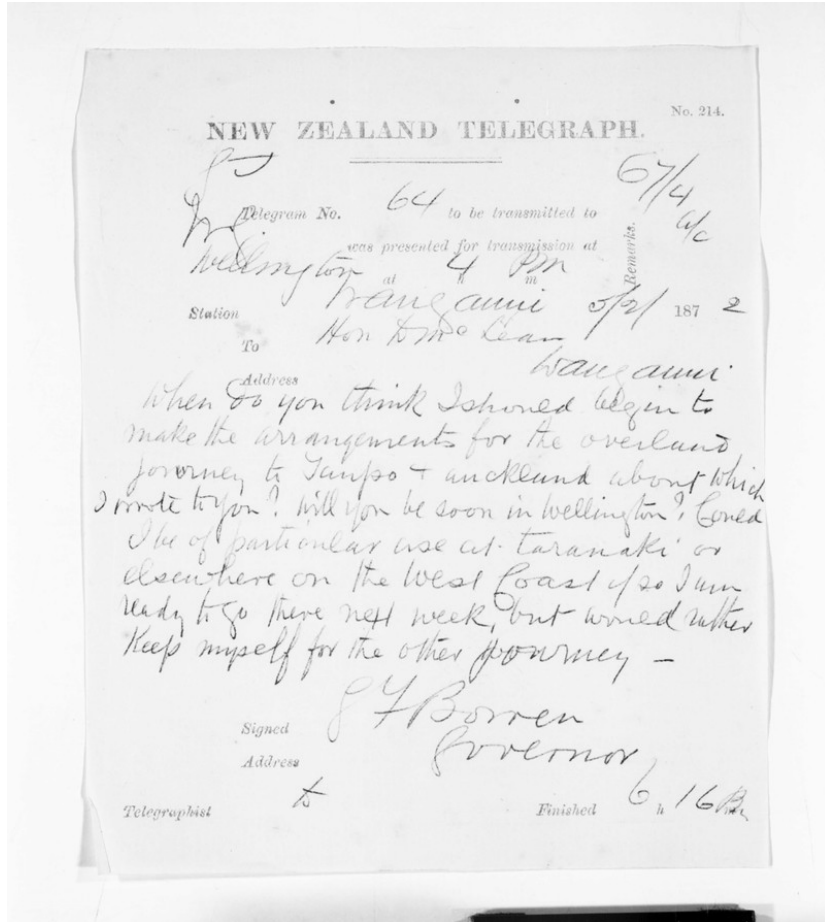 No. 214.
NEW ZEALAND TELEGRAPH.
67/4
Telegram No. 64 to be transmitted to
a/c
Remarks.
was presented for transmission at
Wellington at 4 h Pm m
Station Wanganui 5/2/ 1872
To Hon D McLean
Address Wanganui
When do you think I should begin to
make the arrangements for the overland
journey to Taupo & auckland about which
I wrote to you? Will you be soon in Wellington? Could
I be of particular use at Taranaki or
elsewhere on the West Coast if so I am
ready to go there next week, but would rather
Keep myself for the other journey —
Signed G F Bowen
Governor
Address
Telegraphist Finished 6 h 16 Pm